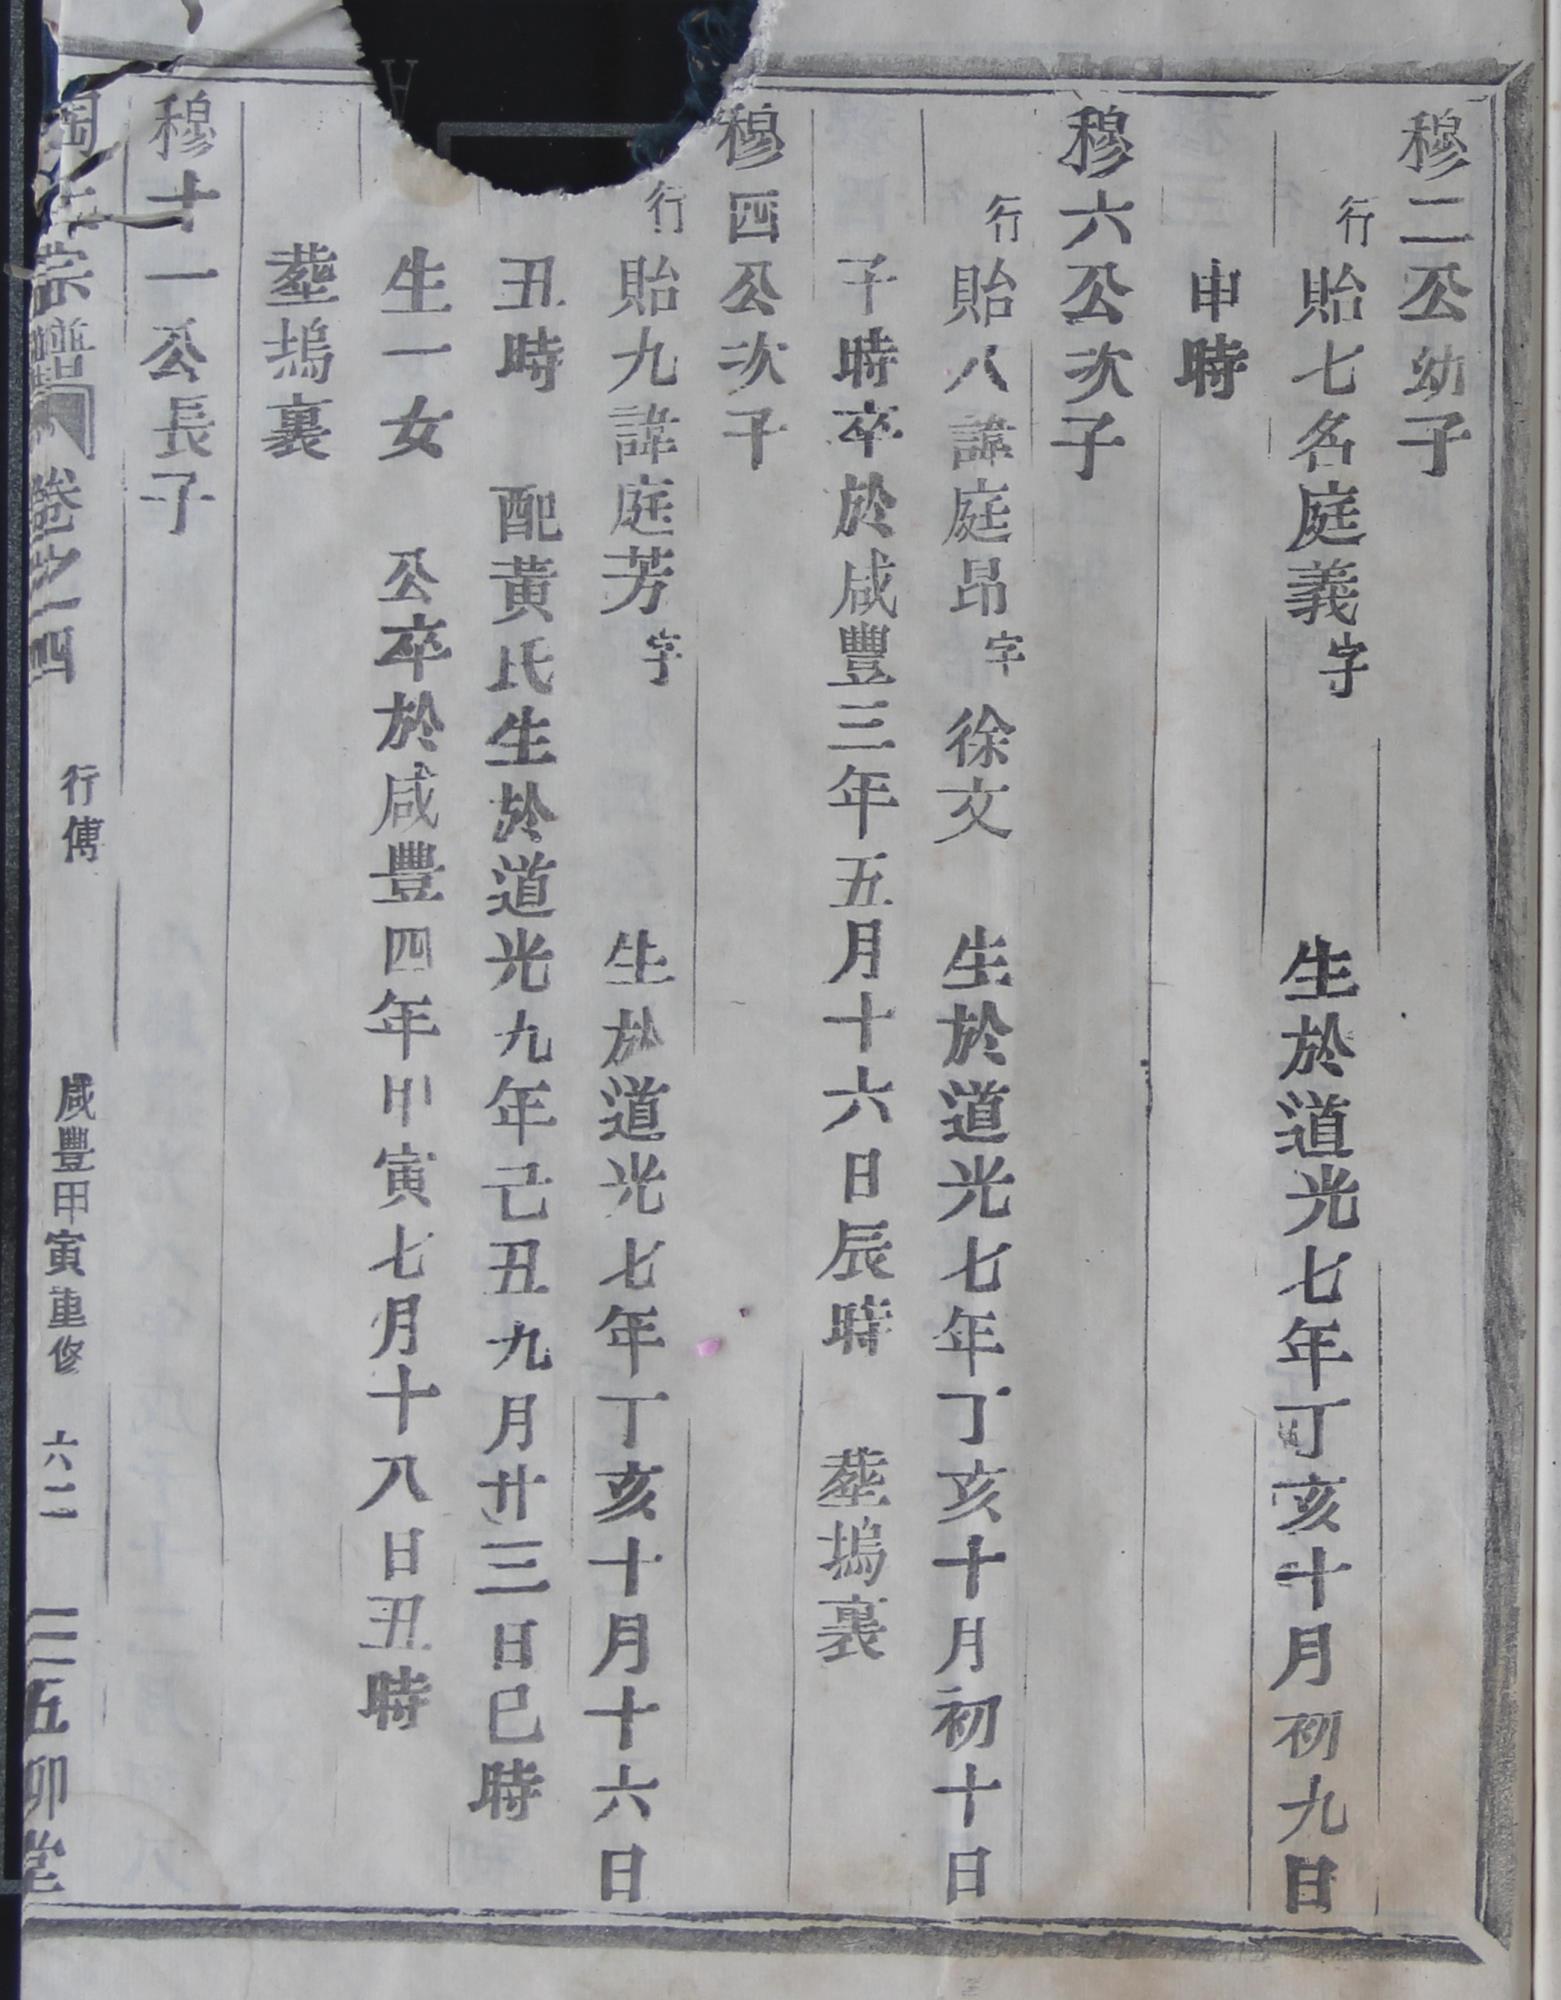 穆二公幼子
行貽七名庭義字 生於道光七年丁亥十月初九日
申時
穆六公次子
行貽八諱庭昂字徐文 生於道光七年丁亥十月初十日
子時卒於咸豐三年五月十六日辰時 塟塢裏
穆四公次子
行貽九諱庭芳字 生於道光七年丁亥十月十六日
丑時 配黃氏生於道光九年己丑九月廿三日巳時
生一女 公卒於咸豐四年甲寅七月十八日丑時
塟塢裏
穆十一公長子
宗譜 卷之十四 行傳 咸豐甲寅重修 六二 五柳堂